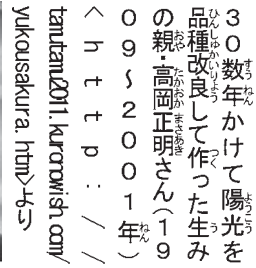 30数年かけて陽光を
品種改良して作った生み
の親・高岡正明さん(19
09〜2001年)
<http://
tanutanu2011.kuronowish.com/
yukousakura.htm>より